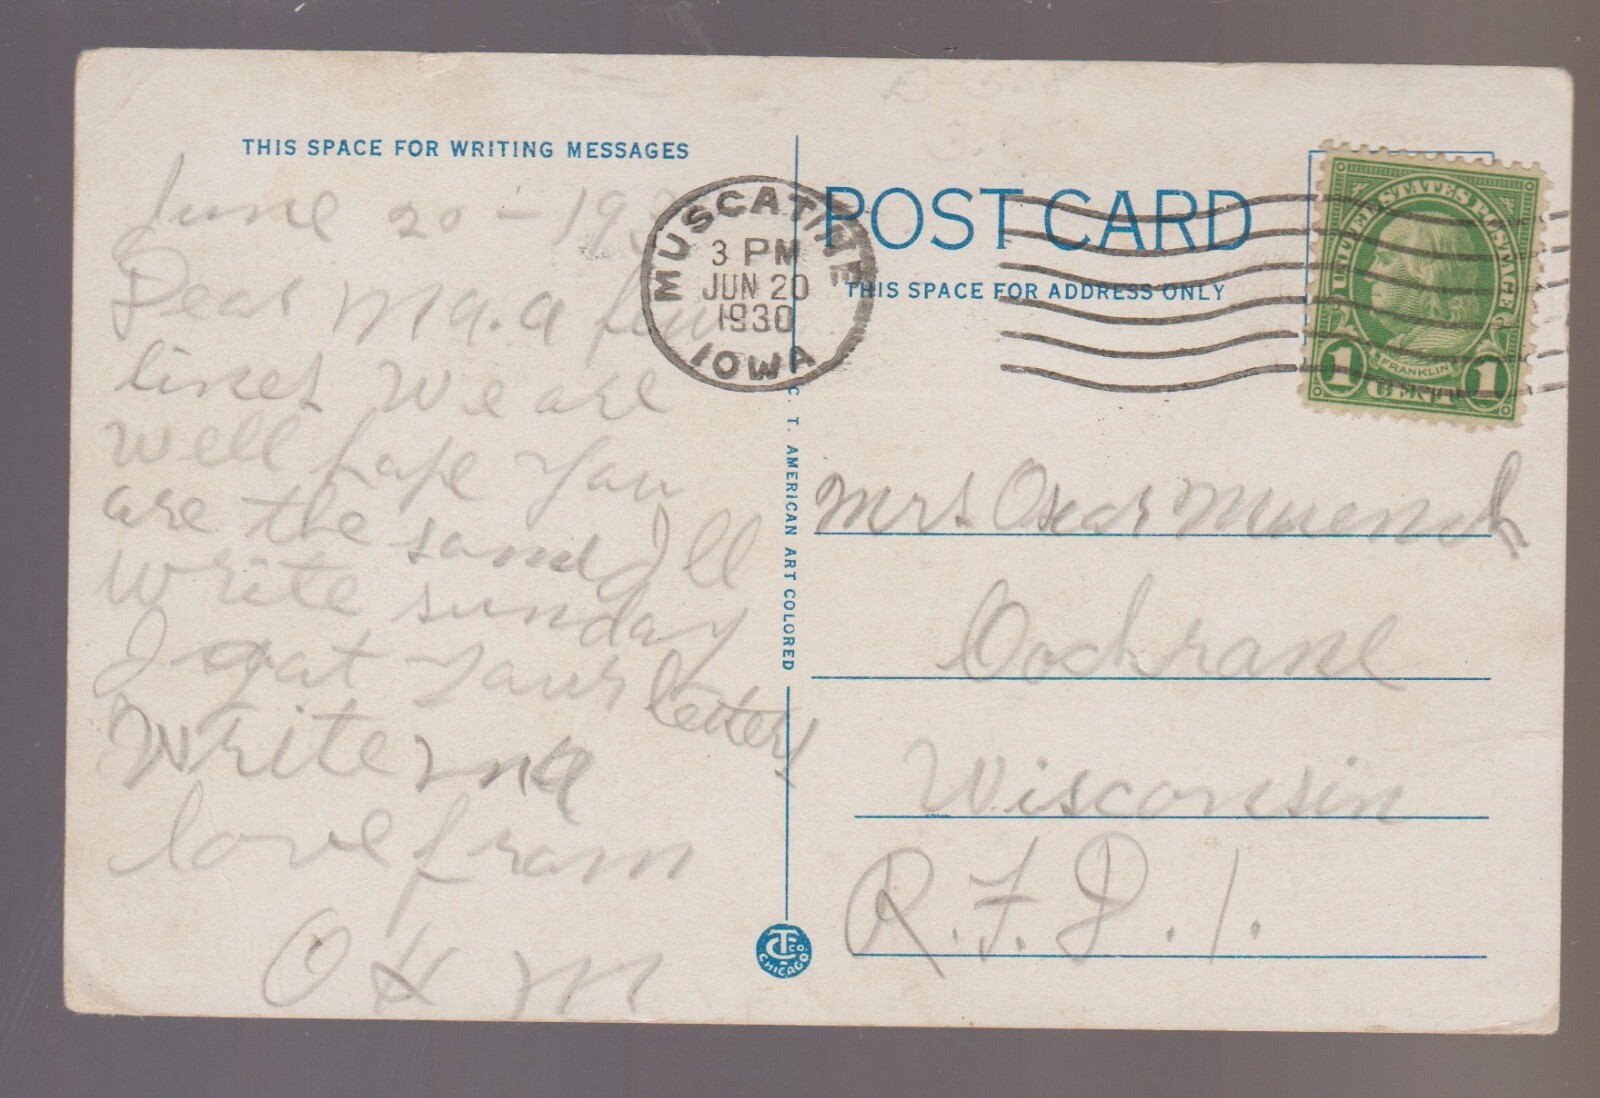 THIS SPACE FOR WRITING MESSAGES
June 20 - 193
Dear Ma. a few
lines We are
well hope you
are the same Ill
write sunday
I got your letter
Write me
love from
O H M
MUSCATINE
3 PM
JUN 20
1930
IOWA
C. T. AMERICAN ART COLORED
C.T. CO. CHICAGO
POST CARD
THIS SPACE FOR ADDRESS ONLY
UNITED STATES POSTAGE
FRANKLIN
1 CENT 1
Mrs Oscar Muench
Cochrane
Wisconsin
R.F.D.1.